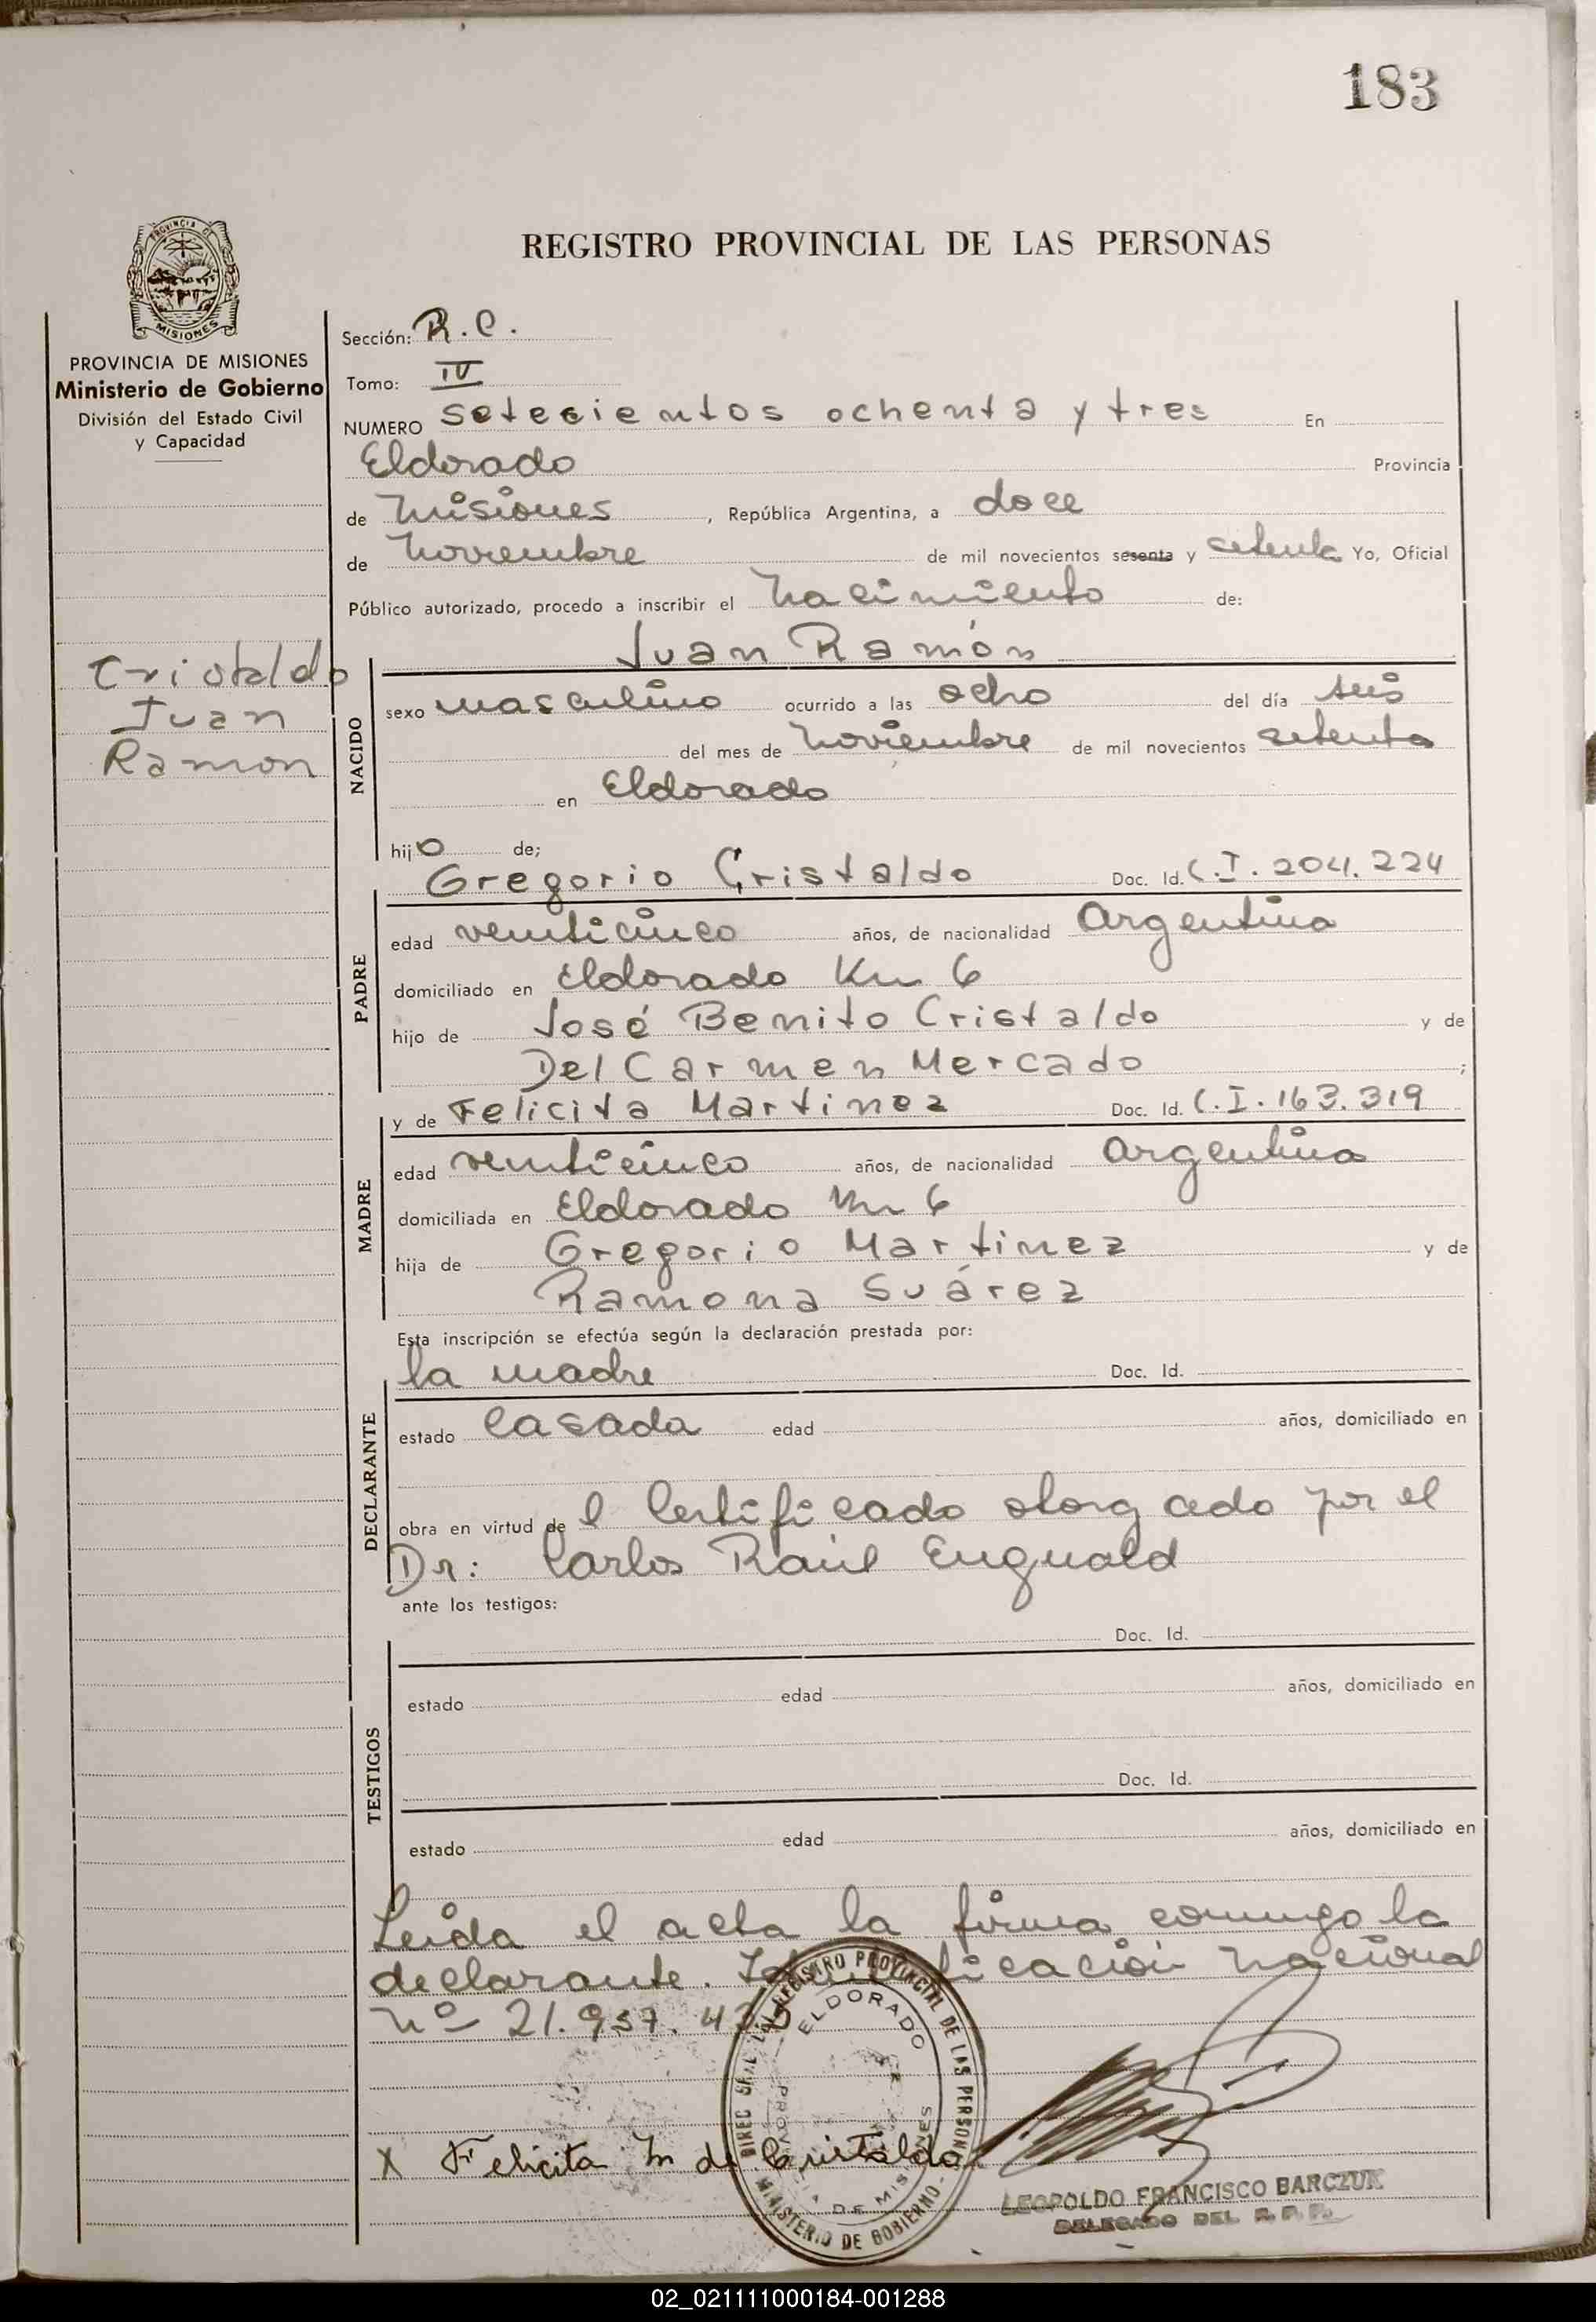 183
REGISTRO PROVINCIAL DE LAS PERSONAS
PROVINCIA DE MISIONES
Ministerio de Gobierno
División del Estado Civil
y Capacidad
Sección: R.C.
Tomo: IV
NUMERO Setecientos ochenta y tres En
Eldorado Provincia
de Misiones, República Argentina, a doce
de noviembre de mil novecientos sesenta y setenta Yo, Oficial
Público autorizado, procedo a inscribir el nacimiento de:
Juan Ramón
Cristaldo
Juan
Ramon
NACIDO
sexo masculino ocurrido a las ocho del día seis
del mes de noviembre de mil novecientos setenta
en Eldorado
hijo de;
Gregorio Cristaldo Doc. Id. C.I. 204.224
PADRE
edad veinticinco años, de nacionalidad Argentina
domiciliado en Eldorado Km 6
hijo de José Benito Cristaldo y de
Del Carmen Mercado ;
y de Felicita Martinez Doc. Id. C.I. 163.319
MADRE
edad veinticinco años, de nacionalidad Argentina
domiciliada en Eldorado Km 6
hija de Gregorio Martinez y de
Ramona Suárez
Esta inscripción se efectúa según la declaración prestada por:
la madre Doc. Id.
DECLARANTE
estado Casada edad años, domiciliado en
obra en virtud de l Certificado otorgado por el
Dr: Carlos Raúl
ante los testigos:
Doc. Id.
TESTIGOS
estado edad años, domiciliado en
Doc. Id.
estado edad años, domiciliado en
Leída el acta la firma conmigo la
declarante. Identificación Nacional
nº 21.937.
X Felicita M de Cristaldo
DIREC. GRAL. DEL REGISTRO PROVINCIAL DE LAS PERSONAS
ELDORADO
PROVINCIA DE MISIONES
MINISTERIO DE GOBIERNO
LEOPOLDO FRANCISCO BARCZUK
DELEGADO DEL R. P. P.
02_021111000184-001288